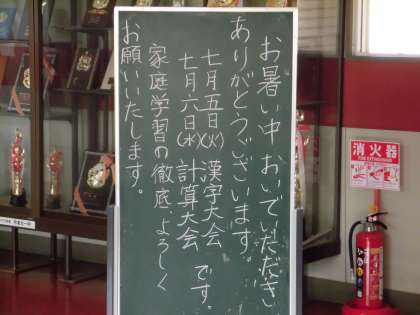 お暑い中 おいでいただき
ありがとうございます。
七月五日(火) 漢字大会
七月六日(水) 計算大会 です。
家庭学習の徹底、よろしく
お願いいたします。
消火器
FIRE EXTINGUISHER